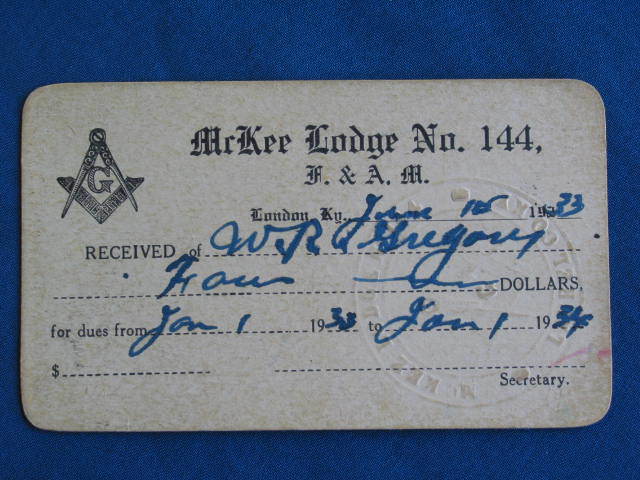 G
McKee Lodge No. 144,
F. & A. M.
London, Ky. 15 1933
RECEIVED of W. R. Gregory
Four DOLLARS,
for dues from Jan 1 1933 to Jan 1 1934
$
Secretary.